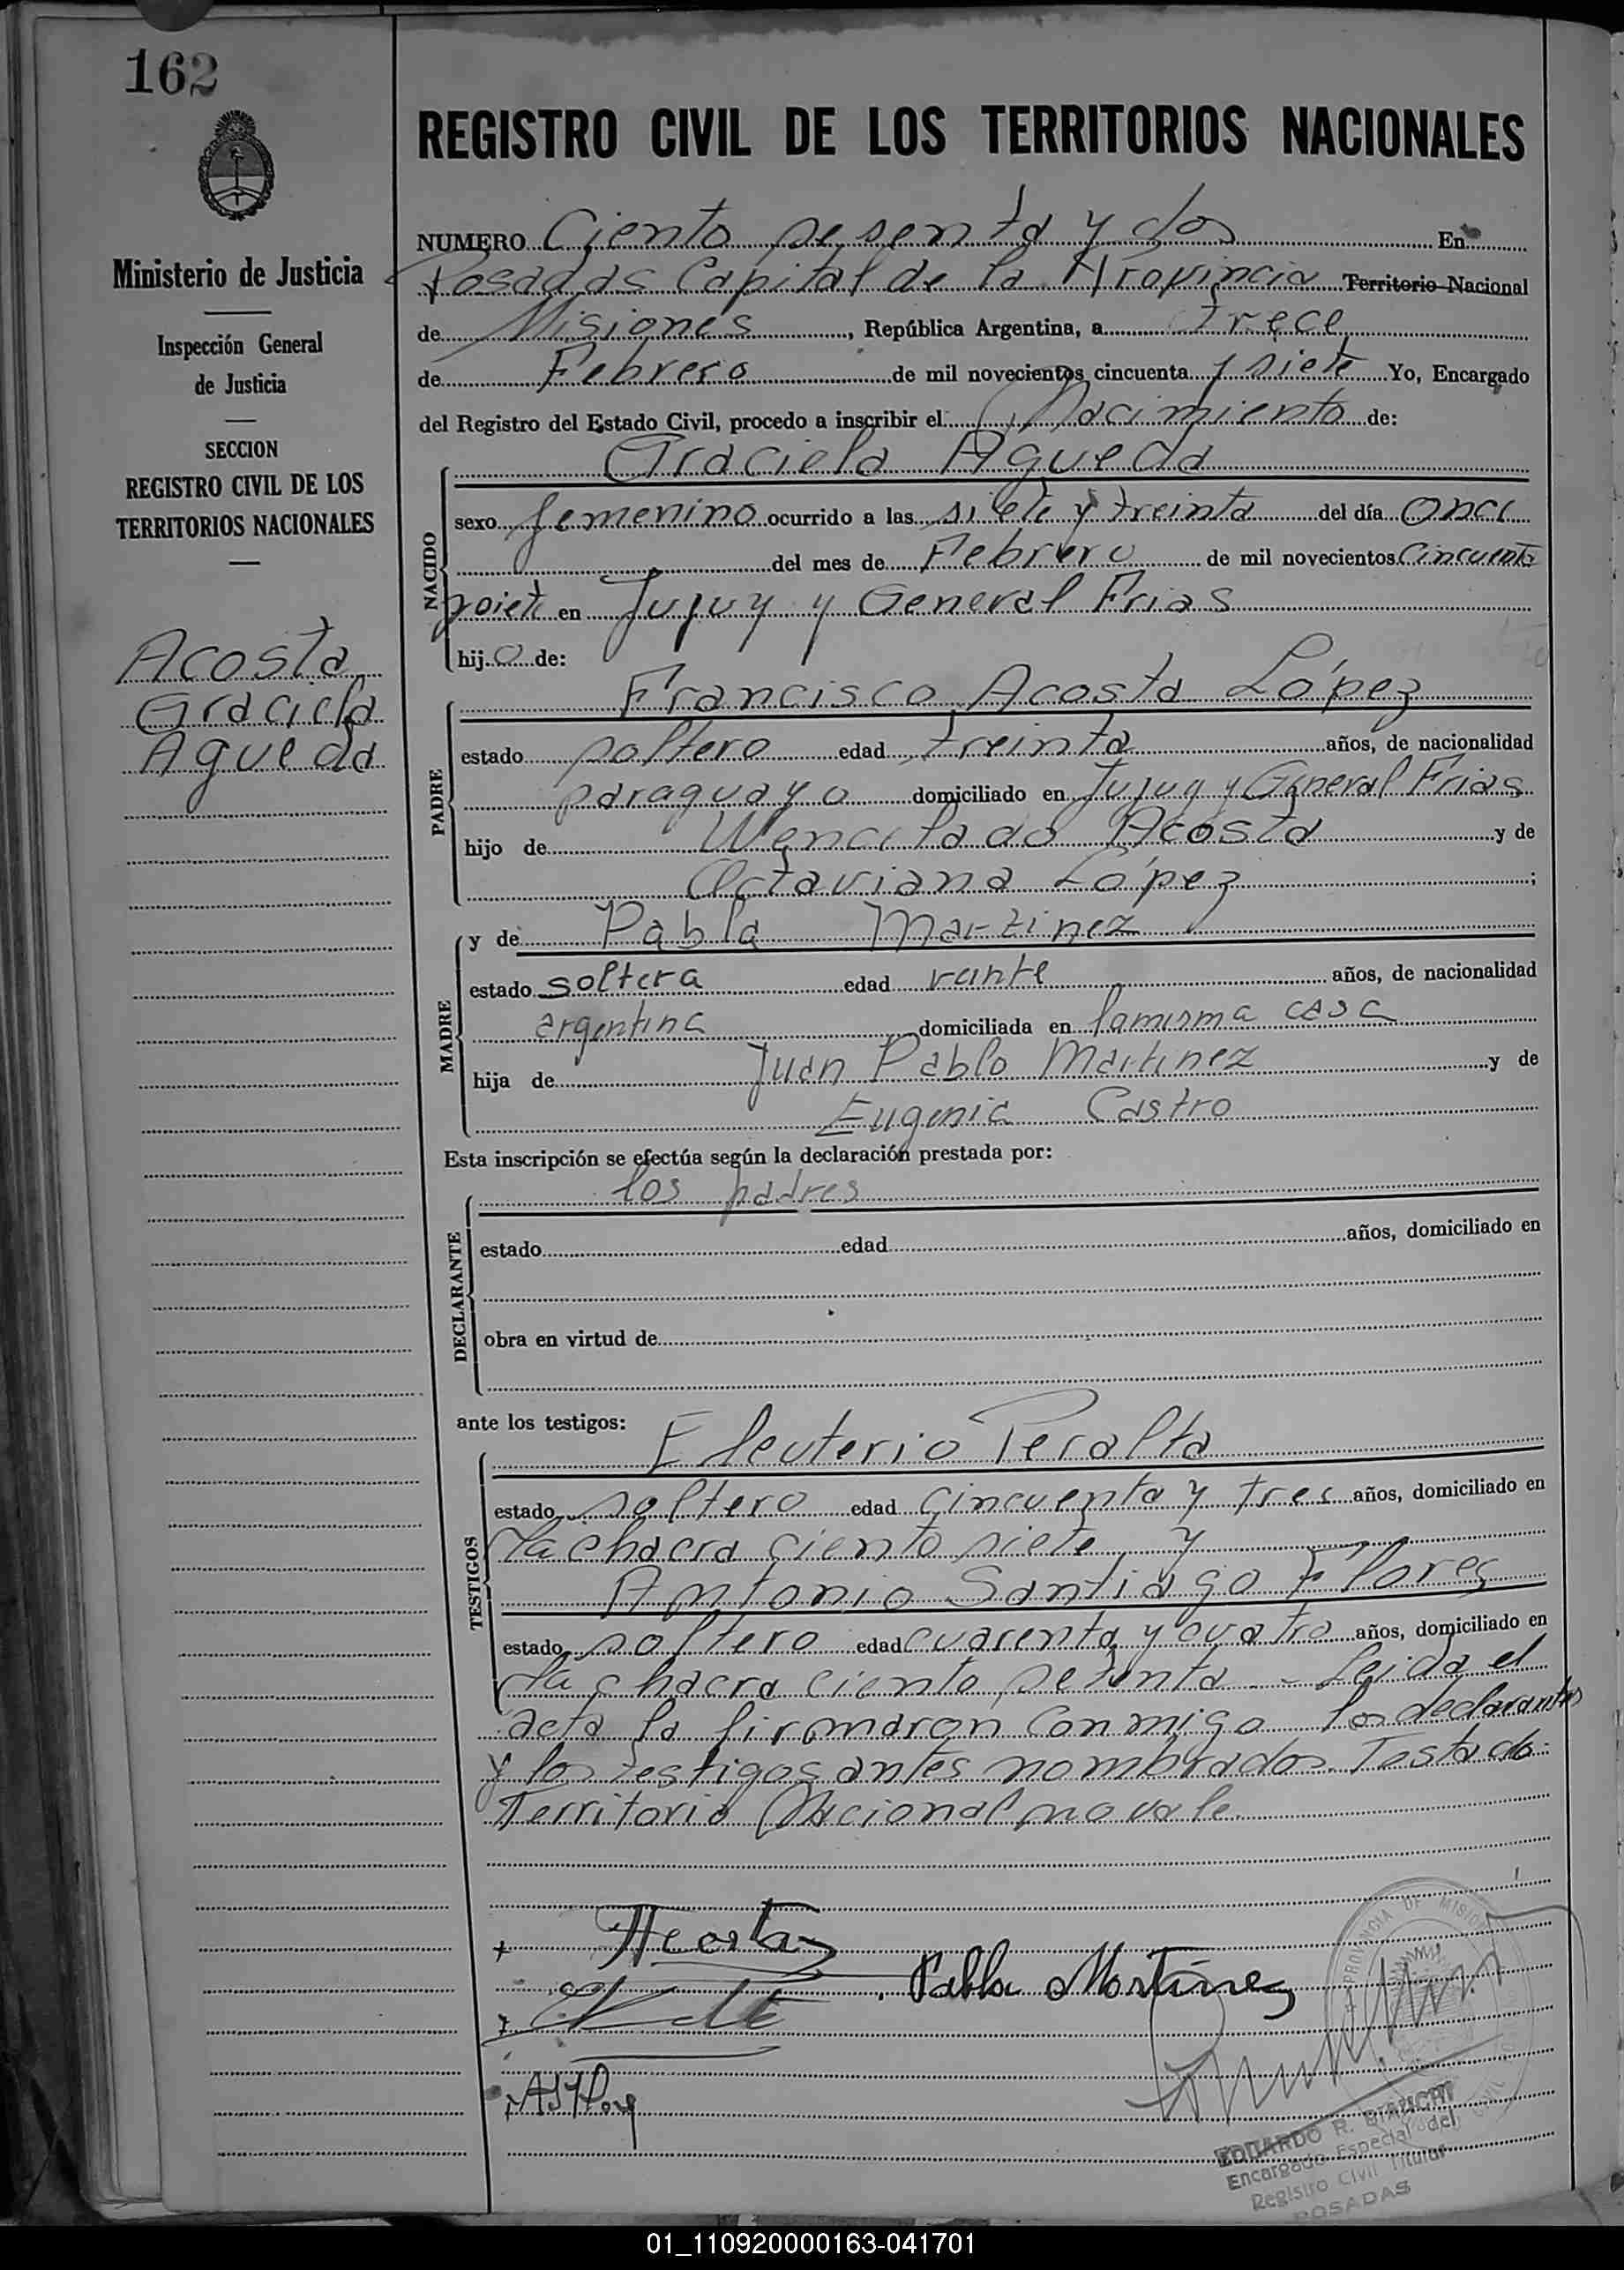 162
Ministerio de Justicia
Inspección General
de Justicia
SECCION
REGISTRO CIVIL DE LOS
TERRITORIOS NACIONALES
Acosta
Graciela
Agueda
REGISTRO CIVIL DE LOS TERRITORIOS NACIONALES
NUMERO Ciento sesenta y dos En
Posadas Capital de la Provincia Territorio Nacional
de Misiones, República Argentina, a trece
de Febrero de mil novecientos cincuenta y siete Yo, Encargado
del Registro del Estado Civil, procedo a inscribir el Nacimiento de:
Graciela Agueda
NACIDO
sexo femenino ocurrido a las siete y treinta del día once
del mes de Febrero de mil novecientos cincuenta
y siete en Jujuy y General Frias
hij a de:
Francisco Acosta López
PADRE
estado soltero edad treinta años, de nacionalidad
paraguayo domiciliado en Jujuy y General Frias
hijo de Wencelado Acosta y de
Octaviana López;
y de Pabla Martinez
MADRE
estado soltera edad vente años, de nacionalidad
argentina domiciliada en la misma casa
hija de Juan Pablo Martinez y de
Eugenia Castro
Esta inscripción se efectúa según la declaración prestada por:
los padres
DECLARANTE
estado edad años, domiciliado en
obra en virtud de
ante los testigos:
Eleuterio Peralta
TESTIGOS
estado soltero edad cincuenta y tres años, domiciliado en
la chacra ciento siete y
Antonio Santiago Flores
estado soltero edad cuarenta y cuatro años, domiciliado en
la chacra ciento setenta - Leida el
acta la firmaron conmigo los declarantes
y los testigos antes nombrados. Testado:
Territorio Nacional no vale.
Acosta
Pabla Martines
PROVINCIA DE MISIONES
EDUARDO R. BIANCHI
Encargado Especial del
Registro Civil Titular
POSADAS
01_110920000163-041701